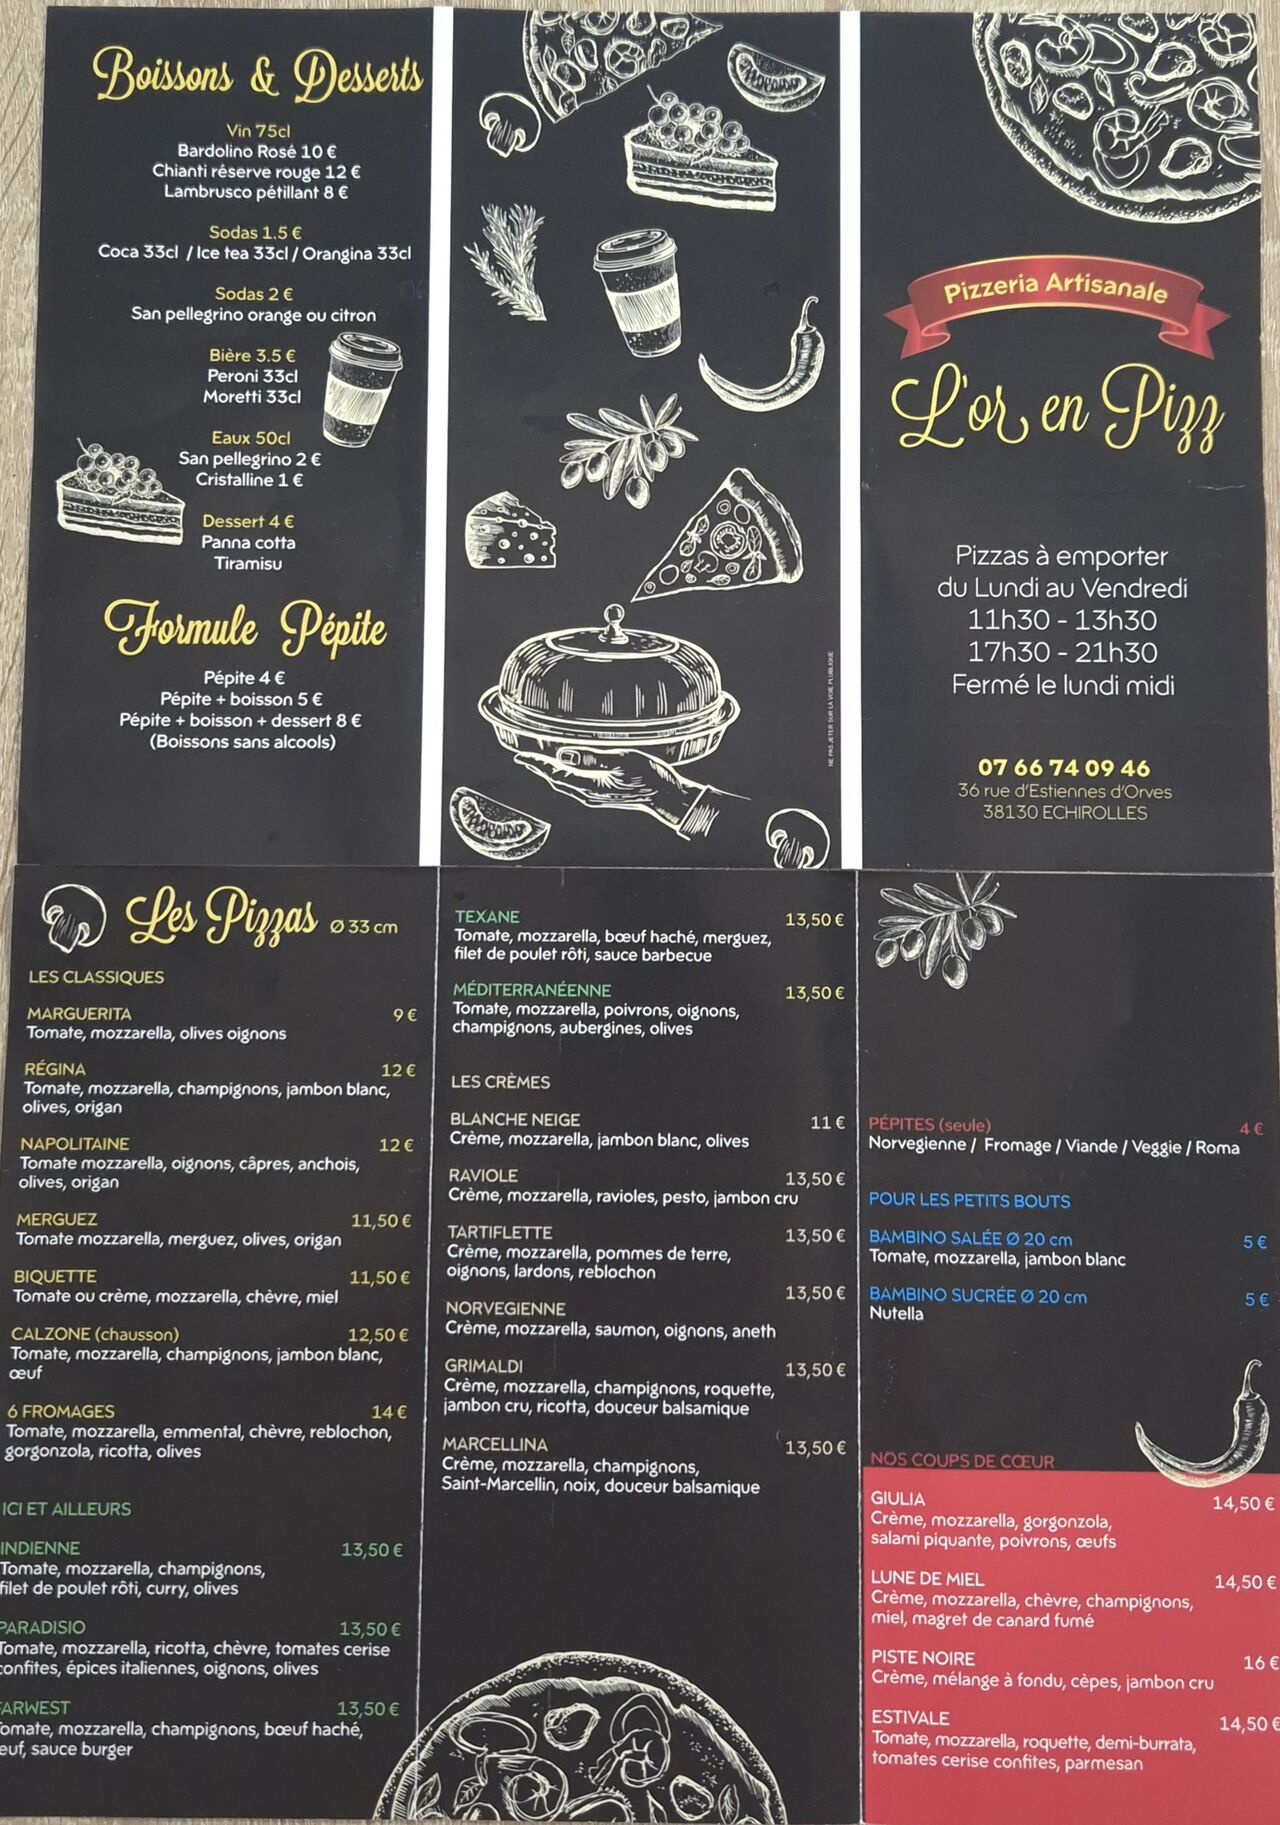 Boissons & Desserts
Vin 75cl
Bardolino Rosé 10 €
Chianti réserve rouge 12 €
Lambrusco pétillant 8 €
Sodas 1.5 €
Coca 33cl / Ice tea 33cl / Orangina 33cl
Sodas 2 €
San pellegrino orange ou citron
Bière 3.5 €
Peroni 33cl
Moretti 33cl
Eaux 50cl
San pellegrino 2 €
Cristalline 1 €
Dessert 4 €
Panna cotta
Tiramisu
Formule Pépite
Pépite 4 €
Pépite + boisson 5 €
Pépite + boisson + dessert 8 €
(Boissons sans alcools)
NE PAS JETER SUR LA VOIE PLUBLIQUE
Pizzeria Artisanale
L'or en Pizz
Pizzas à emporter
du Lundi au Vendredi
11h30 - 13h30
17h30 - 21h30
Fermé le lundi midi
07 66 74 09 46
36 rue d'Estiennes d'Orves
38130 ECHIROLLES
Les Pizzas Ø 33 cm
LES CLASSIQUES
MARGUERITA 9 €
Tomate, mozzarella, olives oignons
RÉGINA 12 €
Tomate, mozzarella, champignons, jambon blanc,
olives, origan
NAPOLITAINE 12 €
Tomate mozzarella, oignons, câpres, anchois,
olives, origan
MERGUEZ 11,50 €
Tomate mozzarella, merguez, olives, origan
BIQUETTE 11,50 €
Tomate ou crème, mozzarella, chèvre, miel
CALZONE (chausson) 12,50 €
Tomate, mozzarella, champignons, jambon blanc,
œuf
6 FROMAGES 14 €
Tomate, mozzarella, emmental, chèvre, reblochon,
gorgonzola, ricotta, olives
ICI ET AILLEURS
INDIENNE 13,50 €
Tomate, mozzarella, champignons,
filet de poulet rôti, curry, olives
PARADISIO 13,50 €
Tomate, mozzarella, ricotta, chèvre, tomates cerise
confites, épices italiennes, oignons, olives
FARWEST 13,50 €
Tomate, mozzarella, champignons, bœuf haché,
œuf, sauce burger
TEXANE 13,50 €
Tomate, mozzarella, bœuf haché, merguez,
filet de poulet rôti, sauce barbecue
MÉDITERRANÉENNE 13,50 €
Tomate, mozzarella, poivrons, oignons,
champignons, aubergines, olives
LES CRÈMES
BLANCHE NEIGE 11 €
Crème, mozzarella, jambon blanc, olives
RAVIOLE 13,50 €
Crème, mozzarella, ravioles, pesto, jambon cru
TARTIFLETTE 13,50 €
Crème, mozzarella, pommes de terre,
oignons, lardons, reblochon
NORVEGIENNE 13,50 €
Crème, mozzarella, saumon, oignons, aneth
GRIMALDI 13,50 €
Crème, mozzarella, champignons, roquette,
jambon cru, ricotta, douceur balsamique
MARCELLINA 13,50 €
Crème, mozzarella, champignons,
Saint-Marcellin, noix, douceur balsamique
PÉPITES (seule) 4 €
Norvegienne / Fromage / Viande / Veggie / Roma
POUR LES PETITS BOUTS
BAMBINO SALÉE Ø 20 cm 5 €
Tomate, mozzarella, jambon blanc
BAMBINO SUCRÉE Ø 20 cm 5 €
Nutella
NOS COUPS DE CŒUR
GIULIA 14,50 €
Crème, mozzarella, gorgonzola,
salami piquante, poivrons, œufs
LUNE DE MIEL 14,50 €
Crème, mozzarella, chèvre, champignons,
miel, magret de canard fumé
PISTE NOIRE 16 €
Crème, mélange à fondu, cèpes, jambon cru
ESTIVALE 14,50 €
Tomate, mozzarella, roquette, demi-burrata,
tomates cerise confites, parmesan